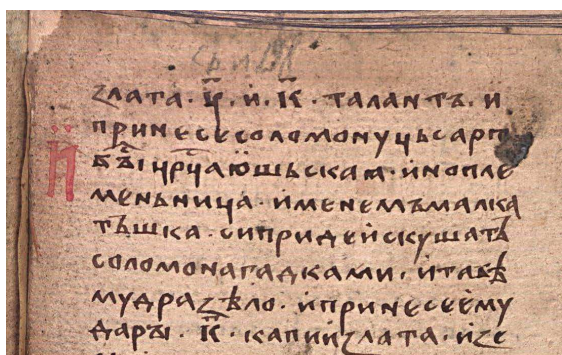 злата · у҃ · и · к҃ · талантъ · и
принесе соломону цьсарю
бы҃ црц҃а юшьскаꙗ · инопле
меньница · именемъ малка
тъшка · си приде искушатъ
соломона гадками · и та бѣ
мудра ѕѣло · и принесе ему
дары · к҃ · капии злата · и зе